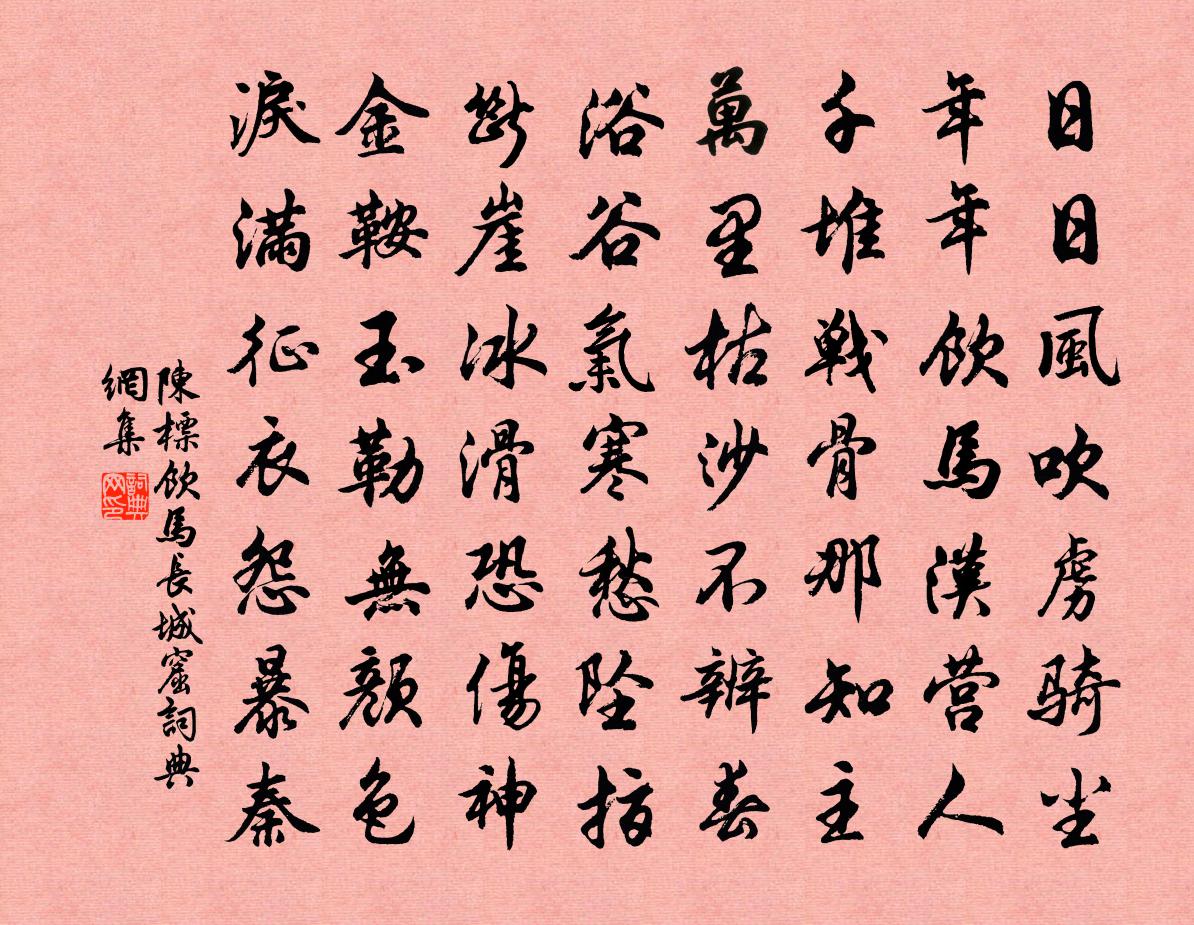 日日風吹虜騎尘
年年飲馬漢营人
千堆戦骨那知主
萬里枯沙不辨春
浴谷氣寒愁坠指
断崖冰滑恐傷神
金鞍玉勒無顔色
淚滿征衣怨暴秦
陳標飲馬長城窟詞典
網集
詞典
网印